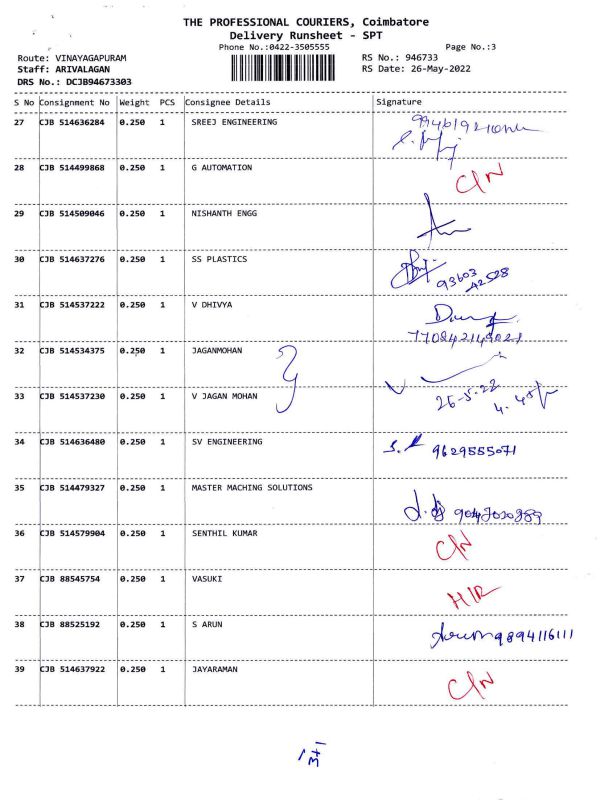 THE PROFESSIONAL COURIERS, Coimbatore
Delivery Runsheet - SPT
Phone No.:0422-3505555
Page No.:3
Route: VINAYAGAPURAM
RS No.: 946733
Staff: ARIVALAGAN
RS Date: 26-May-2022
DRS No.: DCJB94673303
S No Consignment No Weight PCS Consignee Details Signature
27 CJB 514636284 0.250 1 SREEJ ENGINEERING
28 CJB 514499868 0.250 1 G AUTOMATION C/N
29 CJB 514509046 0.250 1 NISHANTH ENGG
30 CJB 514637276 0.250 1 SS PLASTICS
93603
42528
31 CJB 514537222 0.250 1 V DHIVYA
32 CJB 514534375 0.250 1 JAGANMOHAN
33 CJB 514537230 0.250 1 V JAGAN MOHAN 26-5-22
34 CJB 514636480 0.250 1 SV ENGINEERING 9629555071
35 CJB 514479327 0.250 1 MASTER MACHING SOLUTIONS
36 CJB 514579904 0.250 1 SENTHIL KUMAR C/N
37 CJB 88545754 0.250 1 VASUKI
38 CJB 88525192 0.250 1 S ARUN 9894116111
39 CJB 514637922 0.250 1 JAYARAMAN C/N